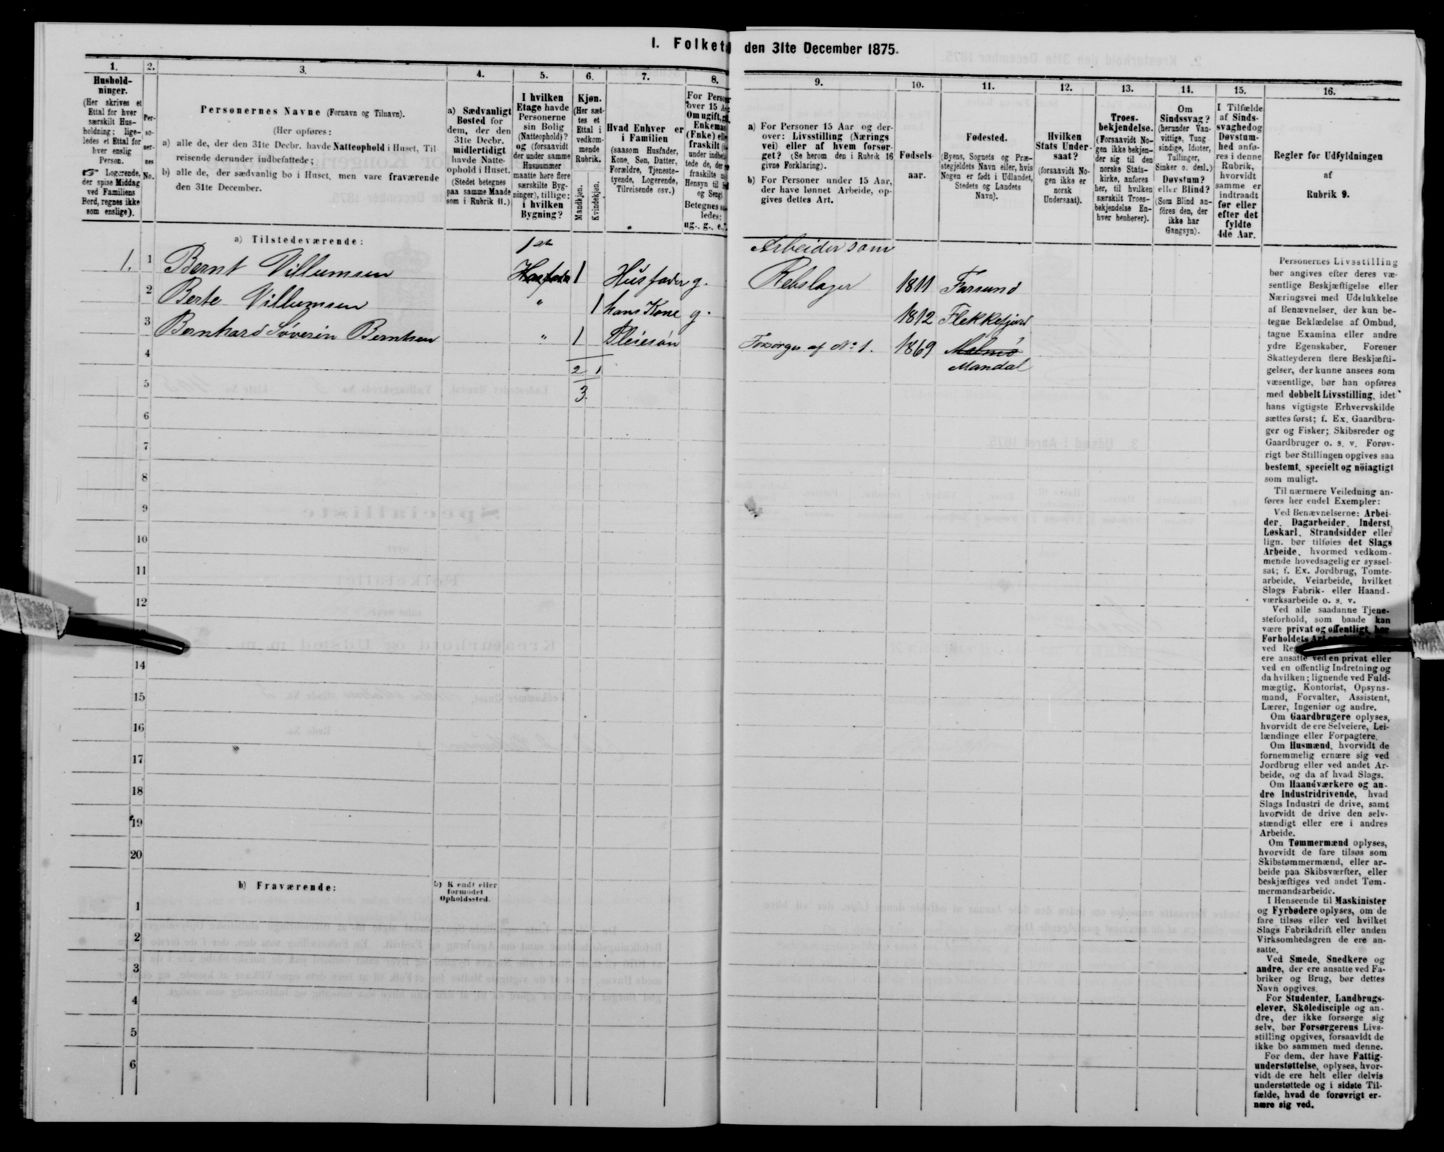 I. Folket den 31te December 1875.
1.
Hushold-
ninger.
(Her skrives et
Ettal for hver
særskilt Hus-
holdning; lige-
ledes et Ettal for
hver enslig
Person.
☞ Logerende,
der spise Middag
ved Familiens
Bord, regnes ikke
som enslige).
2.
Per-
so-
ner-
nes
No.
3.
Personernes Navne (Fornavn og Tilnavn).
(Her opføres:
a) alle de, der den 31te Decbr. havde Natteophold i Huset, Til
reisende derunder indbefattede;
b) alle de, der sædvanlig bo i Huset, men vare fraværende
den 31te December.
4.
a) Sædvanligt
Bosted for
dem, der den
31te Decbr.
midlertidigt
havde Natte-
ophold i Huset.
(Stedet betegnes
paa samme Maade
som i Rubrik 11.)
5.
I hvilken
Etage havde
Personerne
sin Bolig
(Natteophold)?
og (forsaavidt
der under samme
Husnummer
maatte høre flere
særskilte Byg-
ninger), tillige:
i hvilken
Bygning?
6.
Kjøn.
(Her sæt-
tes et
Ettal i
vedkom-
mende
Rubrik.
Mandkjøn.
Kvindekjøn.
7.
Hvad Enhver er
i Familien
(saasom Husfader,
Kone, Søn, Datter,
Forældre, Tjeneste-
tyende, Logerende,
Tilreisende osv.).
8.
For Perso
over 15 A
Om ugift,
Enkema
(Fnke) elle
fraskilt
9.
a) For Personer 15 Aar og der-
over: Livsstilling (Nærings
vei) eller af hvem forsør-
get? (Se herom den i Rubrik 16
givne Forklaring).
b) For Personer under 15 Aar,
der have lønnet Arbeide, op-
gives dettes Art.
10.
Fødsels-
aar.
11.
Fødested.
(Byens, Sognets og Præ-
stegjeldets Navn eller, hvis
Nogen er født i Udlandet,
Stedets og Landets
Navn).
12.
Hvilken
Stats Under-
saat?
(forsaavidt No-
gen ikke er
norsk
Undersaat).
13.
Troes-
bekjendelse.
(Forsaavidt No-
gen ikke bekjen-
der sig til den
norske Stats-
kirke, anføres
her, til hvilken
særskilt Troes-
bekjendelse En-
hver henhører).
14.
Om
Sindssvag?
(herunder Van-
vittige, Tung
sindige, Idioter,
Tullinger,
Sinker o. desl.)
Døvstum?
eller Blind?
(Som Blind an-
føres den, der
ikke har
Gangsyn).
15.
I Tilfælde
af Sinds-
svaghed og
Døvstum-
hed anfø-
res i denne
Rubrik,
hvorvidt
samme er
indtraadt
før eller
efter det
fyldte
4de Aar.
16.
Regler for Udfyldningen
af
Rubrik 9.
a) Tilstedeværende:
1. 1 Bernt Villumsen 1ste 1 Husfader g. Arbeider som Rebslager 1811 Farsund
2 Berte Villumsen " 1 hans Kone g. 1812 Flekkefjord
3 Bernhard Søverin Berntsen " 1 Pleiesøn Forsørges af No 1. 1869 Mandal
4 2 1
5 3
6
7
8
9
10
11
12
14
15
16
17
18
19
20
b) Fraværende:
b) Kjendt eller
formodet
Opholdssted.
1
2
3
4
5
6
Personernes Livsstilling
bør angives efter deres væ-
sentlige Beskjæftigelse eller
Næringsvei med Udelukkelse
af Benævnelser, der kun be-
tegne Beklædelse af Ombud,
tagne Examina eller andre
ydre Egenskaber. Forener
Skatteyderen flere Beskjæfti-
gelser, der kunne ansees som
væsentlige, bør han opføres
med dobbelt Livsstilling, idet
hans vigtigste Erhvervskilde
sættes først; f. Ex. Gaardbru-
ger og Fisker; Skibsreder og
Gaardbruger o. s. v. Forøv-
rigt bør Stillingen opgives saa
bestemt, specielt og nöiagtigt
som muligt.
Til nærmere Veiledning an-
føres her endel Exempler:
Ved Benævnelserne: Arbei-
der, Dagarbeider, Inderst,
Løskarl, Strandsidder eller
lign. bør tilføies det Slags
Arbeide, hvormed vedkom-
mende hovedsagelig er syssel-
sat; f. Ex. Jordbrug, Tomte-
arbeide, Veiarbeide, hvilket
Slags Fabrik- eller Haand-
værksarbeide o. s. v.
Ved alle saadanne Tjene-
steforhold, som baade kan
være privat og offentligt, bør
Forholdets
ved
ere ansatte ved en privat eller
ved en offentlig Indretning og
da hvilken; lignende ved Fuld-
mægtig, Kontorist, Opsyns-
mand, Forvalter, Assistent,
Lærer, Ingeniør og andre.
Om Gaardbrugere oplyses,
hvorvidt de ere Selveiere, Lei-
lændinge eller Forpagtere.
Om Husmænd, hvorvidt de
fornemmelig ernære sig ved
Jordbrug eller ved andet Ar-
beide, og da af hvad Slags.
Om Haandværkere og an-
dre Industridrivende, hvad
Slags Industri de drive, samt
hvorvidt de drive den selv-
stændigt eller ere i andres
Arbeide.
Om Tømmermænd oplyses,
hvorvidt de fare tilsøs som
Skibstømmermænd, eller ar-
beide paa Skibsværfter, eller
beskjæftiges ved andet Tøm-
mermandsarbeide.
I Henseende til Maskinister
og Fyrbødere oplyses, om de
fare tilsøs eller ved hvilket
Slags Fabrikdrift eller anden
Virksomhedsgren de ere an-
satte.
Ved Smede, Snedkere og
andre, der ere ansatte ved Fa-
briker og Brug, bør dettes
Navn opgives.
For Studenter, Landbrugs-
elever, Skoledisciple og an-
dre, der ikke forsørge sig
selv, bør Forsørgerens Livs-
stilling opgives, forsaavidt de
ikke bo sammen med denne.
For dem, der have Fattig-
understøttelse, oplyses, hvor-
vidt de ere helt eller delvis
understøttede og i sidste Til-
fælde, hvad de forøvrigt er-
nære sig ved.